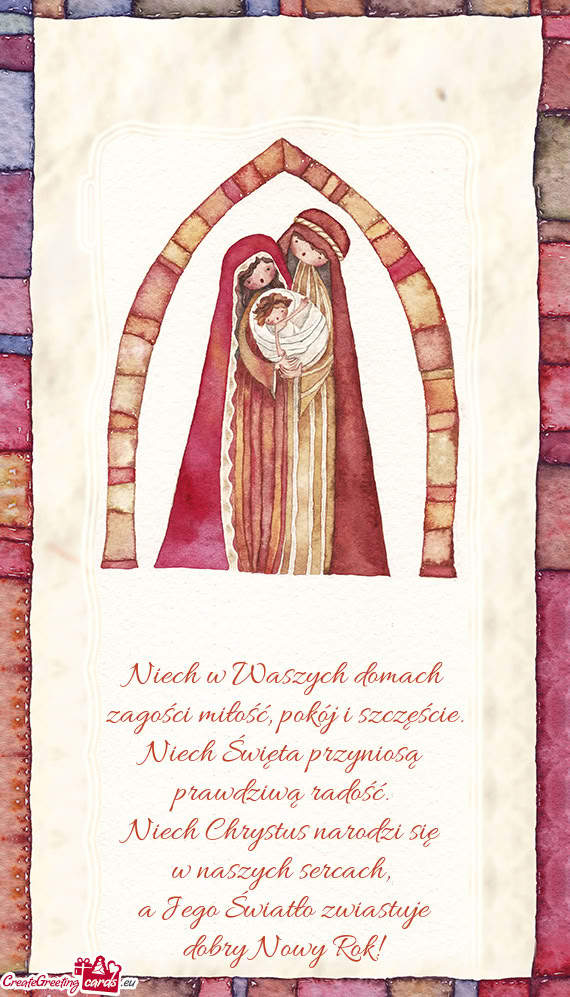 Niech w Waszych domach
zagości miłość, pokój i szczęście.
Niech Święta przyniosą
prawdziwą radość.
Niech Chrystus narodzi się
w naszych sercach,
a Jego Światło zwiastuje
dobry Nowy Rok!
CreateGreeting cards .eu